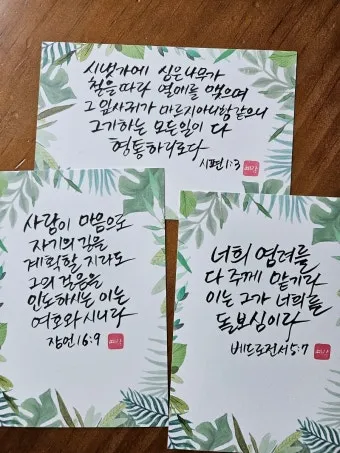 시냇가에 심은나무가
철을따라 열매를 맺으며
그 잎사귀가 마르지아니함같으니
그가하는 모든일이 다
형통하리로다
시편1:3
사람이 마음으로
자기의 길을
계획할 지라도
그의 걸음을
인도하시는 이는
여호와시니라
잠언16:9
너희 염려를
다 주께 맡기라
이는 그가 너희를
돌보심이라
베드로전서5:7